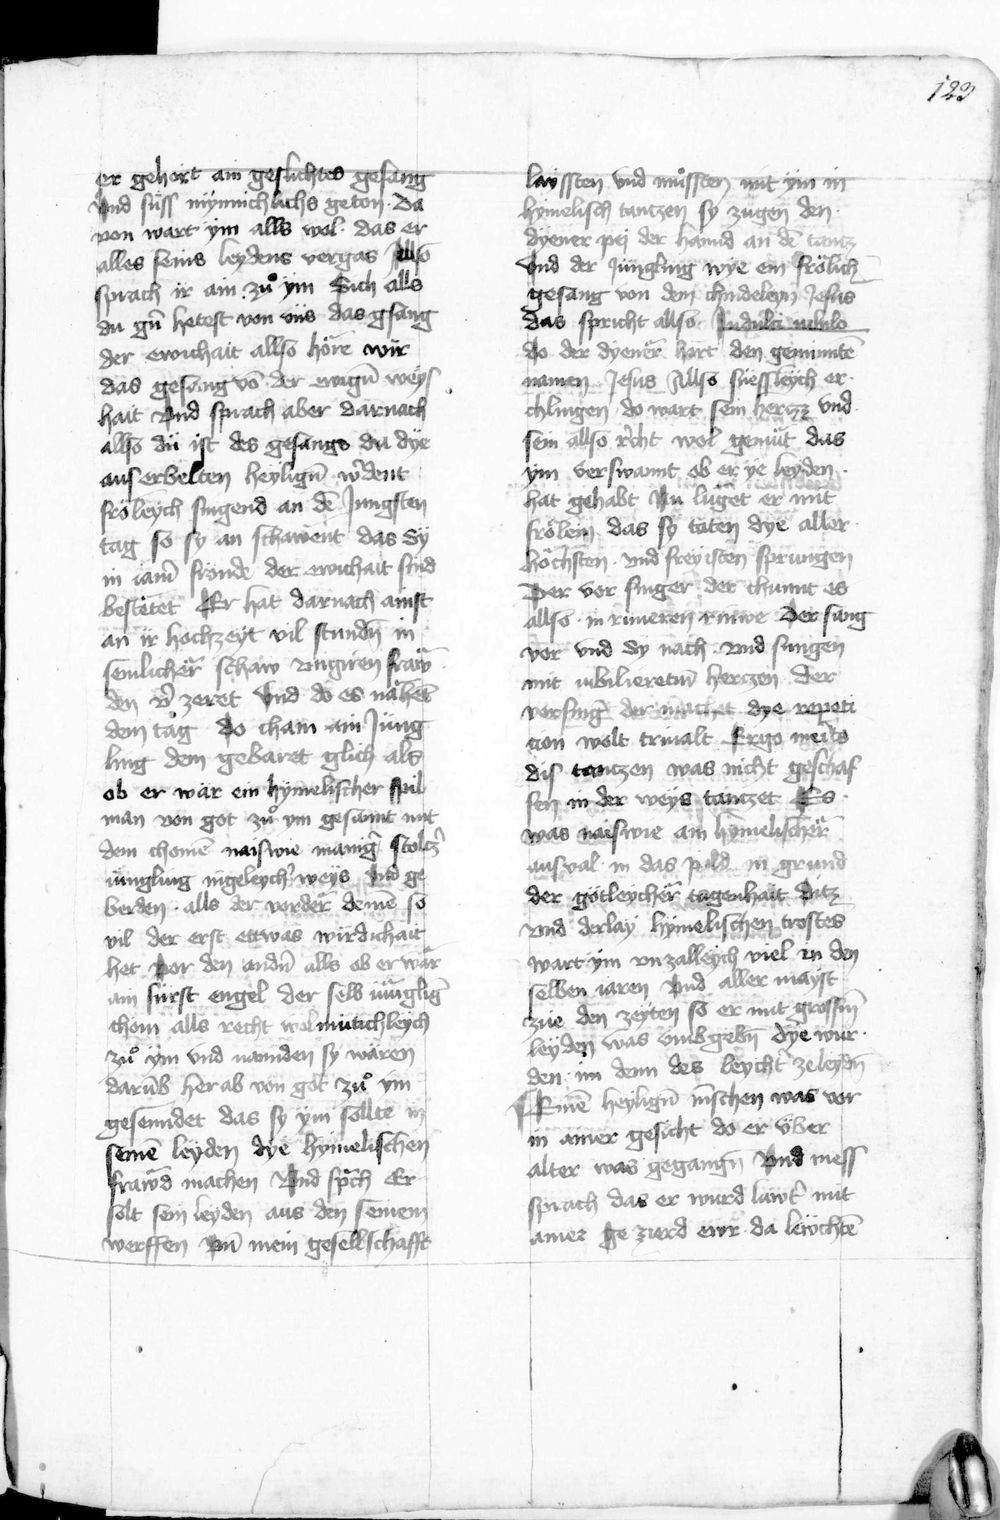 123
er gehort ain geslichtes gesang
Vnd süss mynnichlichs geton. Da
von wart ym alls wol. das er
alles seins leydens vergas Allso
sprach ir am zuͦ ym Sich alls
du gn̄ hetest von uns das gsang
der ewichait allso höre wir
das gesang vō der ewign̄ weys
hait Vnd sprach aber darnach
allso dü ist des gesangs du dye
auserbelten heylign̄ w'dent
fröleych singend an dē Jungsten
tag so sy an schawent das Sy
in iam̄ frönde der ewichait sind
bestetet Er hat darnach ainst
an ir hochzeyt vil stundn̄ in
semlicher schaw
den v' zeret Vnd do es nähet
dem tag do cham ain Jüng
ling dem gebaret glich als
ob er wär ein hymelischer spil
man von got zuͦ ym gesannt mit
dem chomē naiswie manig' stoltz'
iüngling ingeleych' weys Vnd ge
berden. alls der vorder demē so
vil der erst ettwas wirdichait
het vor den andn̄ alls ob er wär
ain fürst engel der selb iünglig
chom alls recht wol mütichleych
zuͦ ym vnd namnden sy wären
darūb herab von got zuͦ ym
gesenndet das sy ym sollte in
seinē leyden dye hymelischen
frawd machen Vnd sp'ch Er
solt sein leyden aus den seinem
werffen Vn̄ mein gesellschafft
layssten vnd muͦssten mit ym in
hymelisch tantzen sy zugen den
dyener pej der hannd an dē tantz
Vnd der Jüngling wye ein frölich
gesang von dem chindeleyn Jesus
das spricht allso. Indulci iubilo
do der dyener hort den genuntē
namen Jesus Allso süessleych er
chlingen do wart sein hertzz vnd
sein allso r'cht wol gemüt das
ym verswannt ob er ye leyden
hat gehabt Nu lüget er mit
frölein das sy täten dye aller
höchsten. vnd freyisten sprungen
Der vor singer der chunnt es
allso in Der sang
vor vnd sy nach. Vnd sungen
mit iubilieretm̄ hertzen der
vorsing' der machet dye repeti
cion wolt trivalt Ergo merito
dis tantzen was nicht geschaf
fen in der weys tantzet Es
was naiswie ain hymelischer
ausval in das pild in grund
der götleycher tagenhait Ditz
vnd derlay hymelischen trostes
wart ym vnzalleych viel in den
selben iaren Vnd aller mayst
zue den zeyten so er mit grossm̄
leyden was vmbgebn̄ dye wur
den im denn des leycht' zeleydn̄
Einē heylign̄ m̄schen was vor
in ainer gesicht do er über
alter was gegangn̄ Vnd mess
sprach das er wurd lawt' mit
ainer ge zierd ewr. da lewchtē